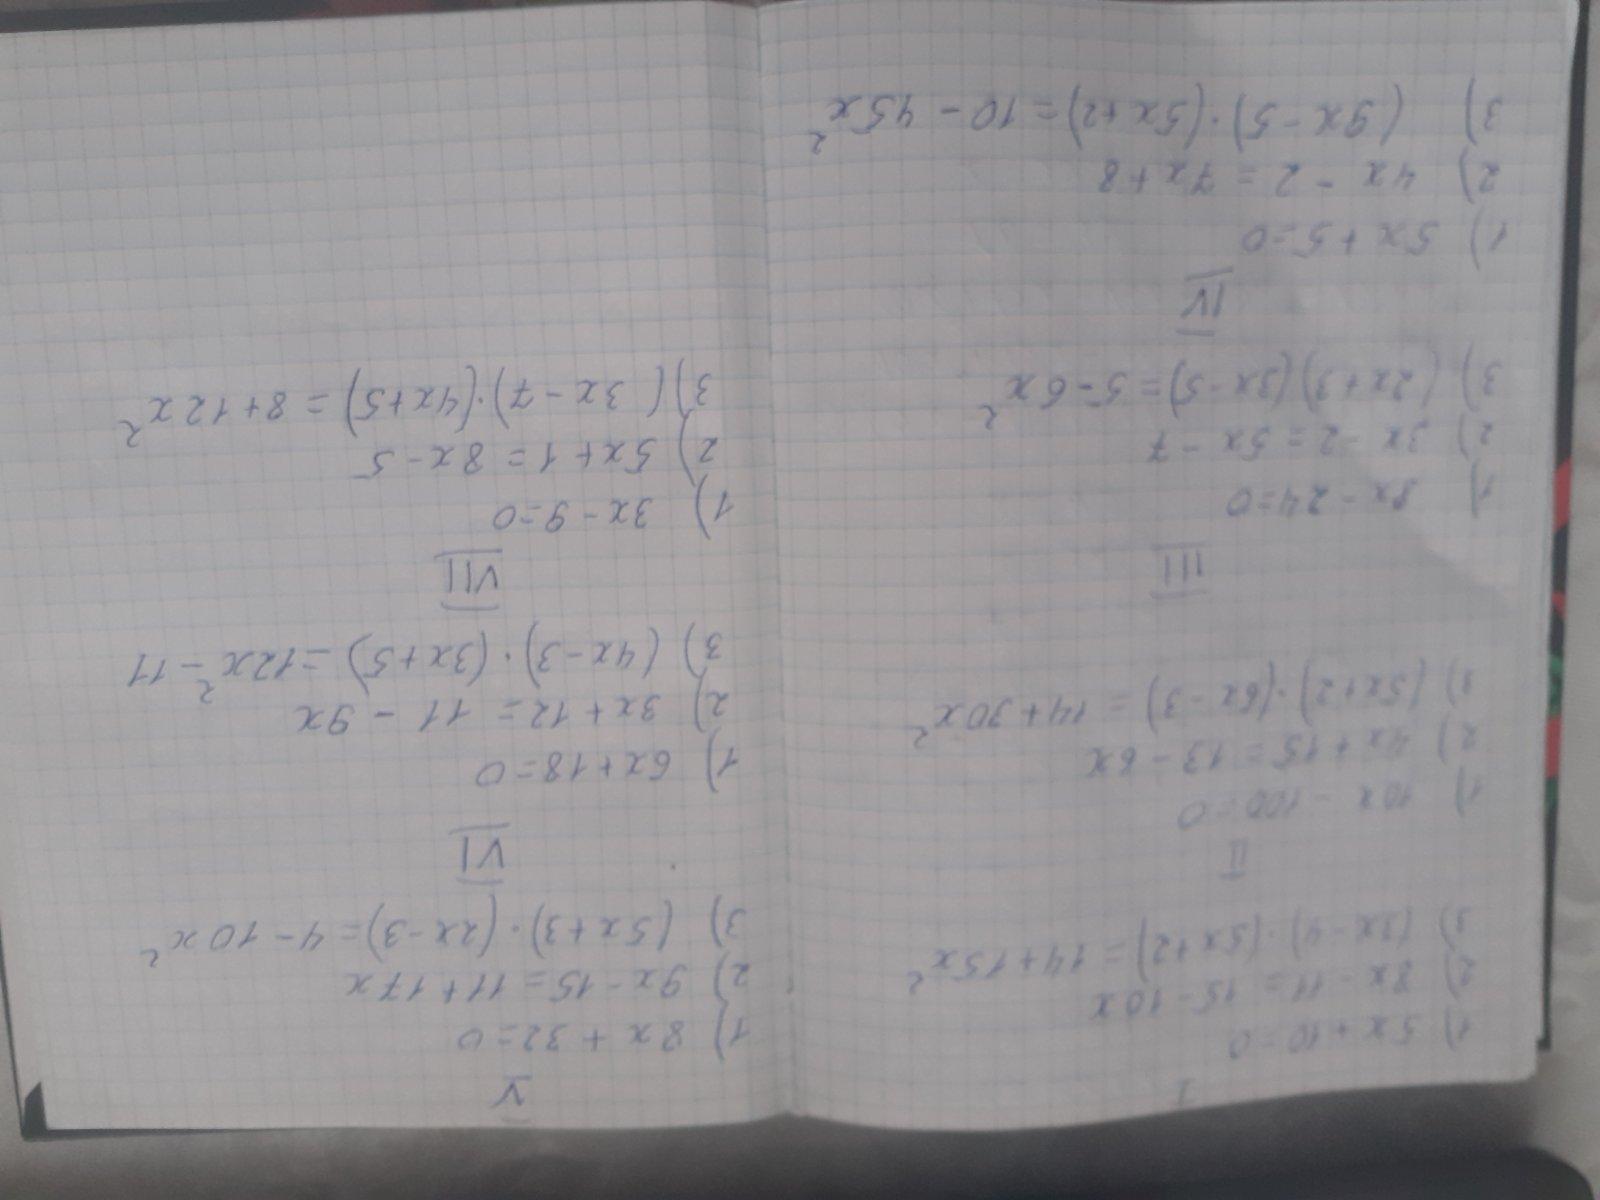 I
1) 5x + 10 = 0
2) 8x - 11 = 15 - 10x
3) (3x - 4) · (5x + 2) = 14 + 15x²
II
1) 10x - 100 = 0
2) 4x + 15 = 13 - 6x
3) (5x + 2) · (6x - 3) = 14 + 30x²
III
1) 8x - 24 = 0
2) 3x - 2 = 5x - 7
3) (2x + 3) (3x - 5) = 5 - 6x²
IV
1) 5x + 5 = 0
2) 4x - 2 = 7x + 8
3) (9x - 5) · (5x + 2) = 10 - 45x²
V
1) 8x + 32 = 0
2) 9x - 15 = 11 + 17x
3) (5x + 3) · (2x - 3) = 4 - 10x²
VI
1) 6x + 18 = 0
2) 3x + 12 = 11 - 9x
3) (4x - 3) · (3x + 5) = 12x² - 11
VII
1) 3x - 9 = 0
2) 5x + 1 = 8x - 5
3) (3x - 7) · (4x + 5) = 8 + 12x²